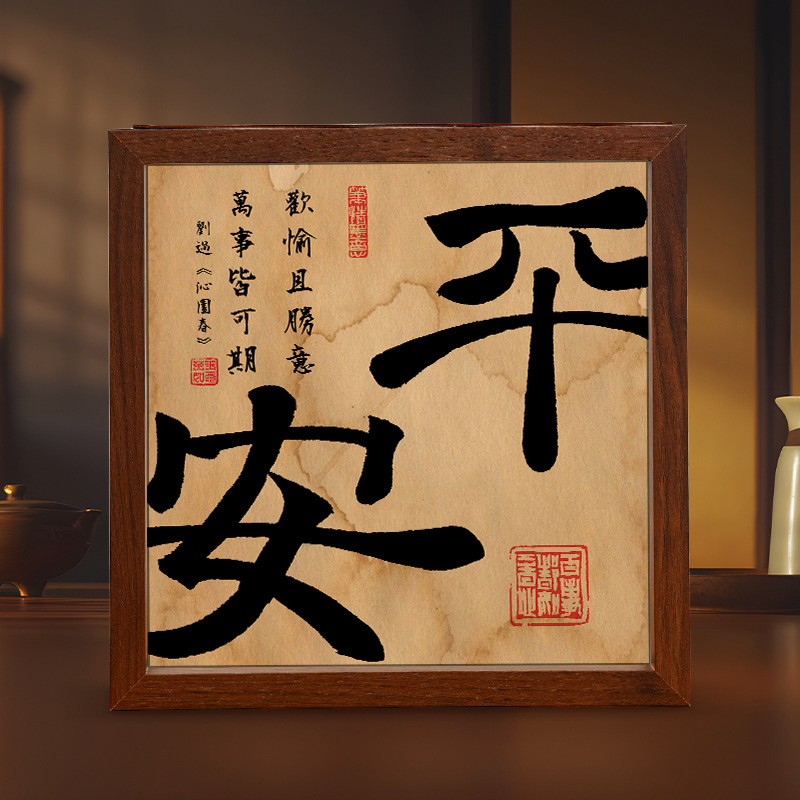 平安
歡愉且勝意
萬事皆可期
劉過《沁園春》